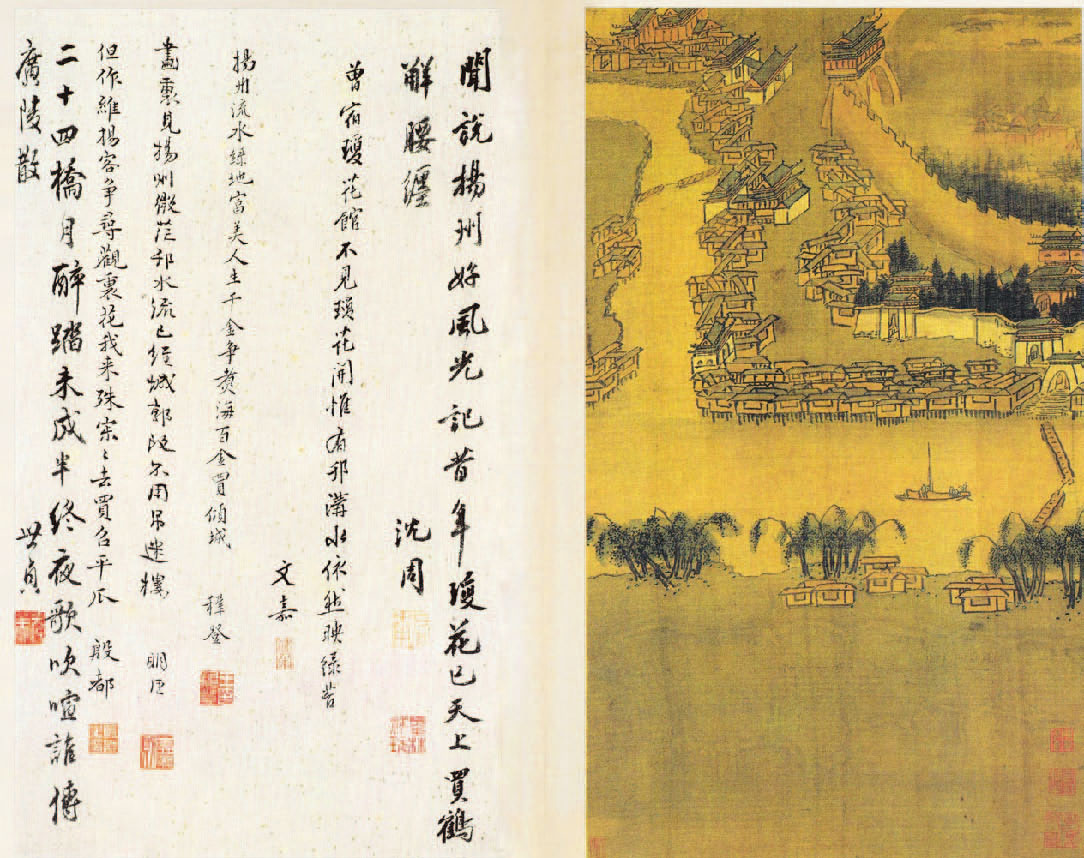 聞說揚州好風光記昔年瓊花已天上買鶴
解腰纏 沈周
曾宿瓊花館不見瓊花開惟有邗溝水依然映綠苔
文嘉
揚州流水綠地富美人生千金爭煑海百金買傾城 穉登
畫裏見揚州微茫邗水流已經城郭改不用吊迷樓
但作維揚客爭尋觀裏花我来殊寂々去買召平瓜 殷都
二十四橋月醉踏未成半終夜歌吹喧誰傳
廣陵散 世貞